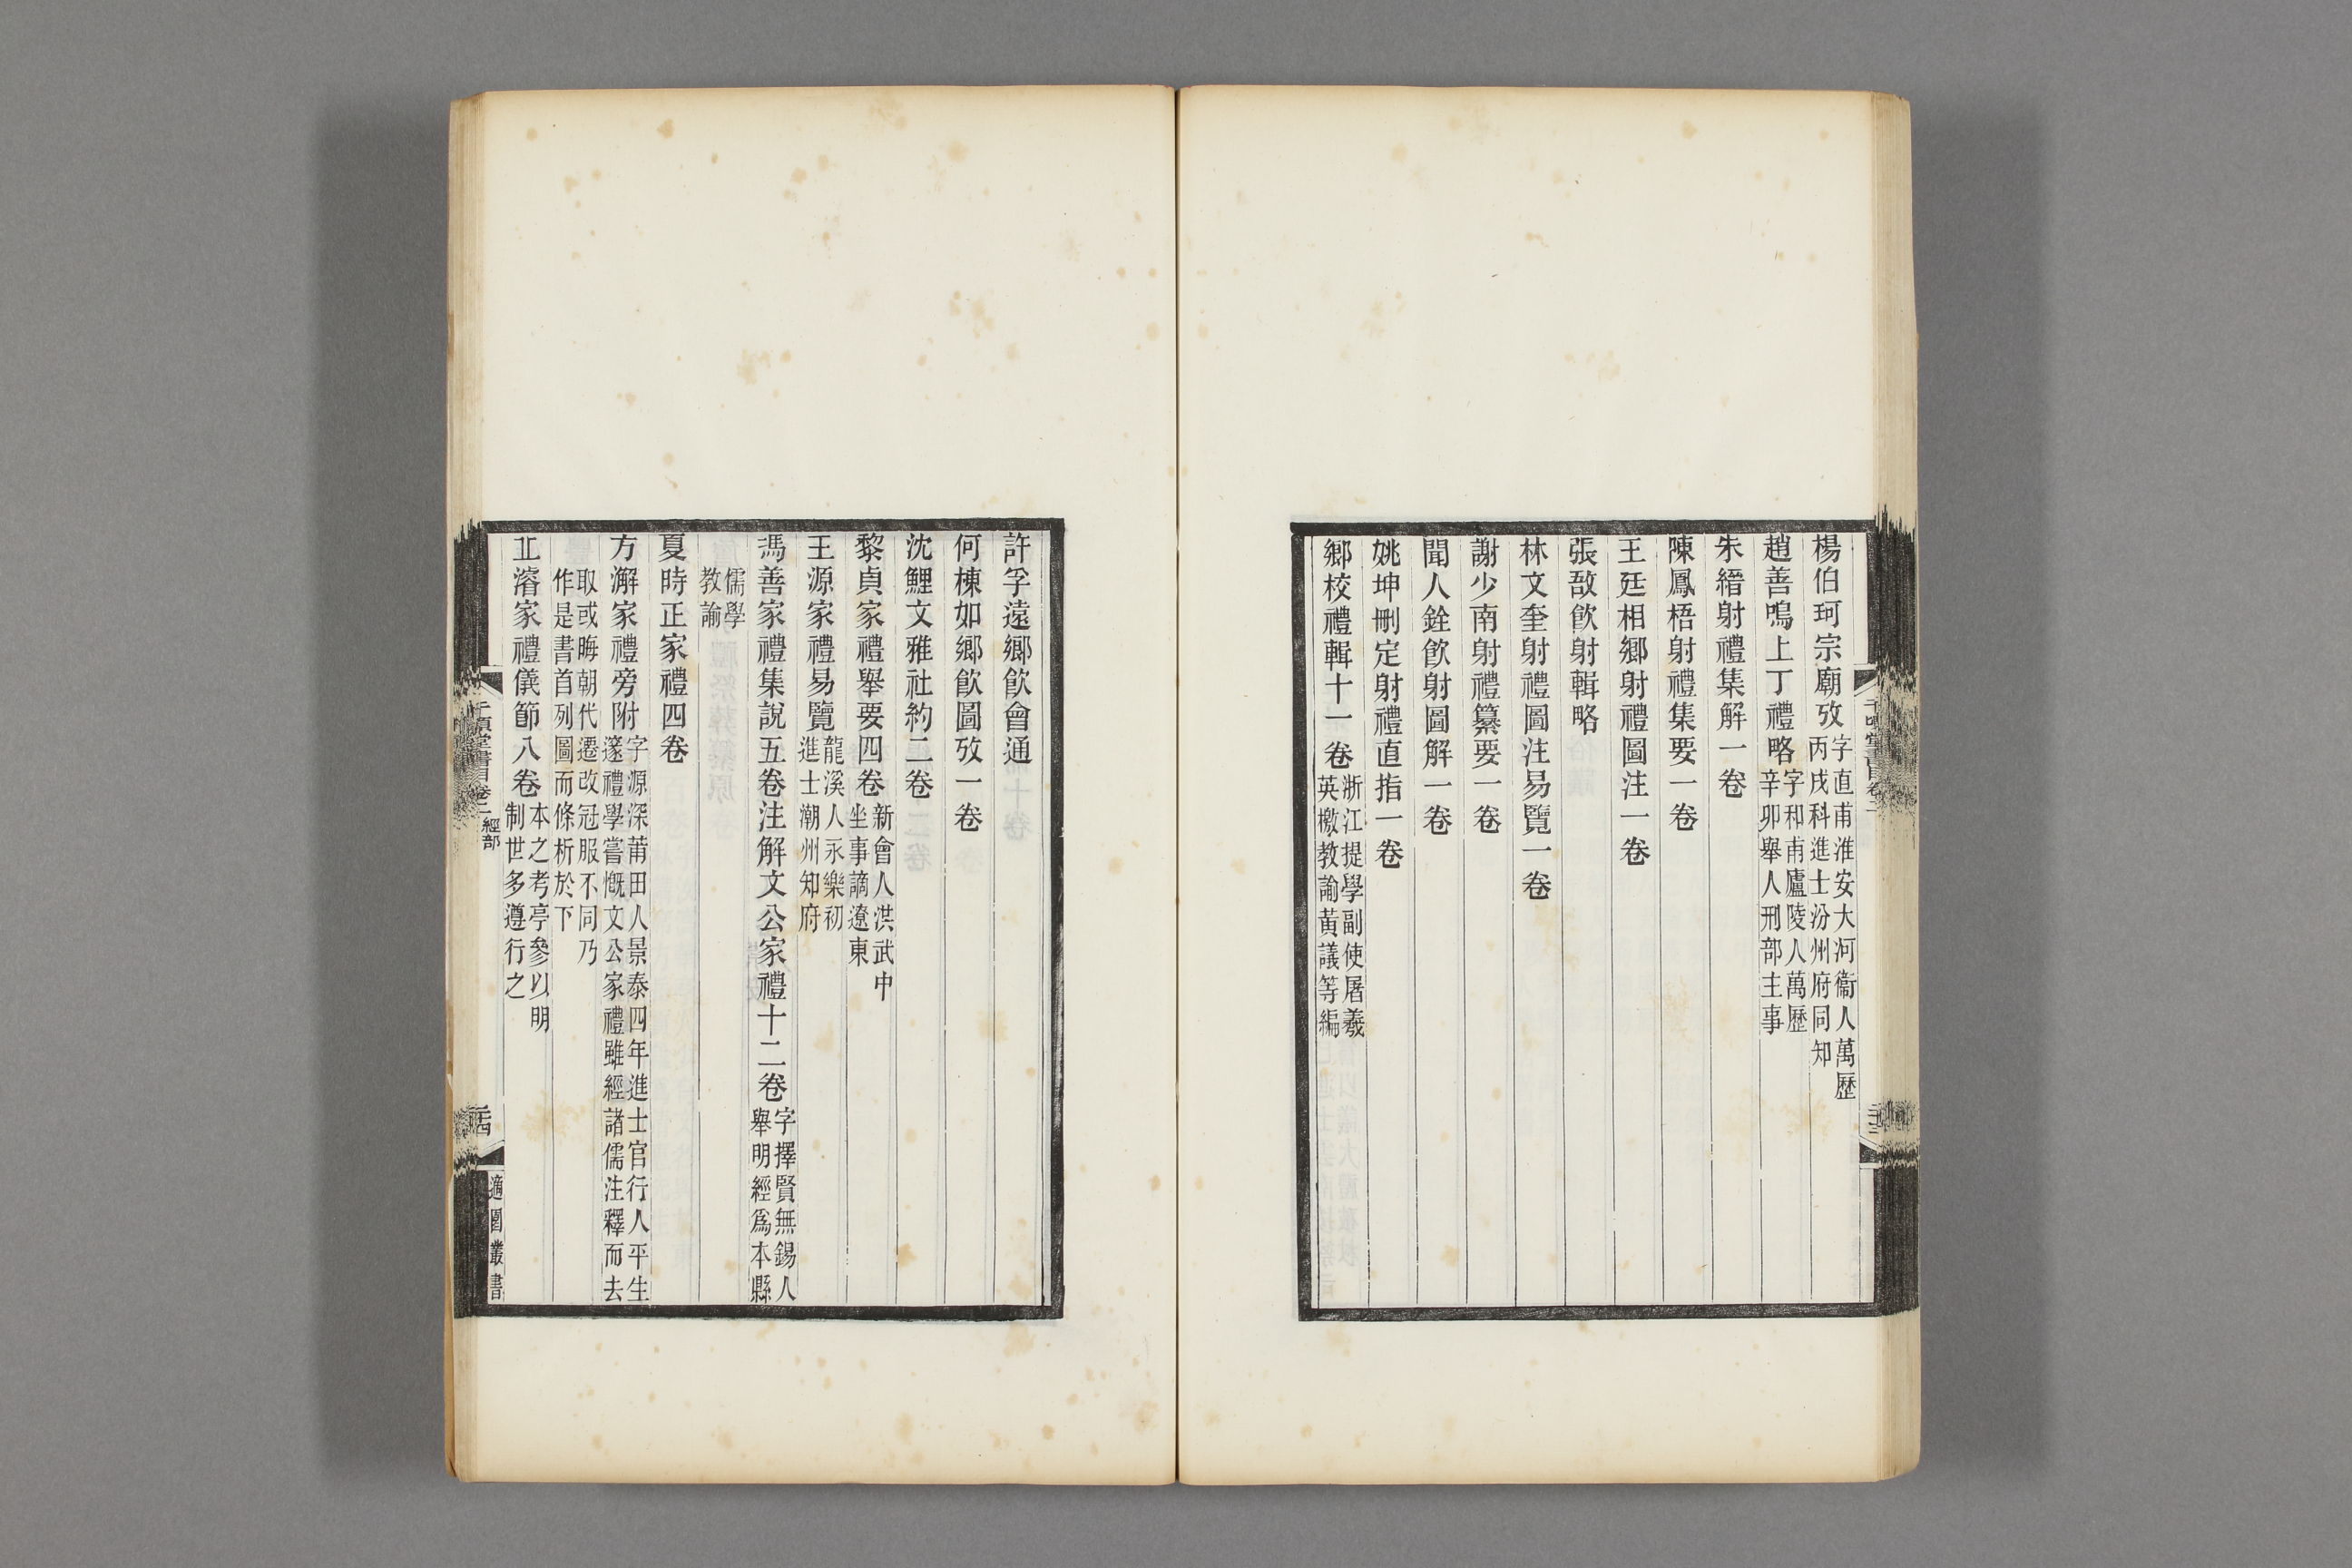 楊伯珂宗廟攷字直甫淮安大河衞人萬歷
丙戌科進士汾州府同知
趙善鳴上丁禮略字和甫廬陵人萬歷
辛卯舉人刑部主事
朱縉射禮集解一卷
陳鳳梧射禮集要一卷
王廷相鄉射禮圖注一卷
張敔飮射輯略
林文奎射禮圖注易覽一卷
謝少南射禮纂要一卷
聞人銓飮射圖解一卷
姚坤刪定射禮直指一卷
鄉校禮輯十一卷浙江提學副使屠羲
英檄教諭黃議等編
許孚遠鄉飮會通
何棟如鄉飮圖攷一卷
沈鯉文雅社約二卷
黎貞家禮舉要四卷新會人洪武中
坐事謫遼東
王源家禮易覽龍溪人永樂初
進士潮州知府
馮善家禮集說五卷注解文公家禮十二卷字擇賢無錫人
舉明經爲本縣
儒學
教諭
夏時正家禮四卷
方澥家禮旁附字源深莆田人景泰四年進士官行人平生
邃禮學嘗慨文公家禮雖經諸儒注釋而去
取或晦朝代遷改冠服不同乃
作是書首列圖而條析於下
丠濬家禮儀節八卷本之考亭參以明
制世多遵行之
千頃堂書目卷二經部
適園叢書